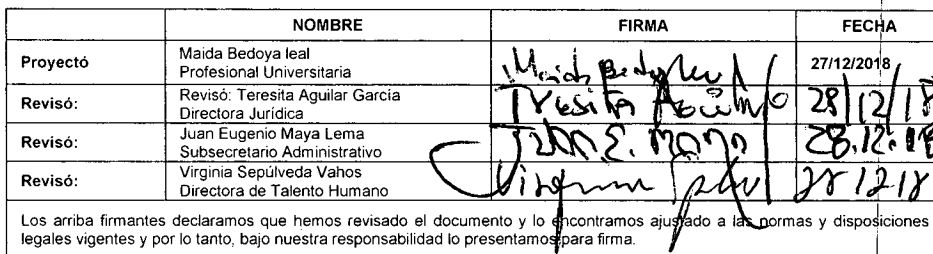 NOMBRE FIRMA FECHA
Proyectó Maida Bedoya leal
Profesional Universitaria Maida Bedoya Leal 27/12/2018
Revisó: Revisó: Teresita Aguilar García
Directora Jurídica Teresita Aguilar 28/12/18
Revisó: Juan Eugenio Maya Lema
Subsecretario Administrativo Juan E. Maya 28.12.18
Revisó: Virginia Sepúlveda Vahos
Directora de Talento Humano Virginia 28 12 18
Los arriba firmantes declaramos que hemos revisado el documento y lo encontramos ajustado a las normas y disposiciones
legales vigentes y por lo tanto, bajo nuestra responsabilidad lo presentamos para firma.